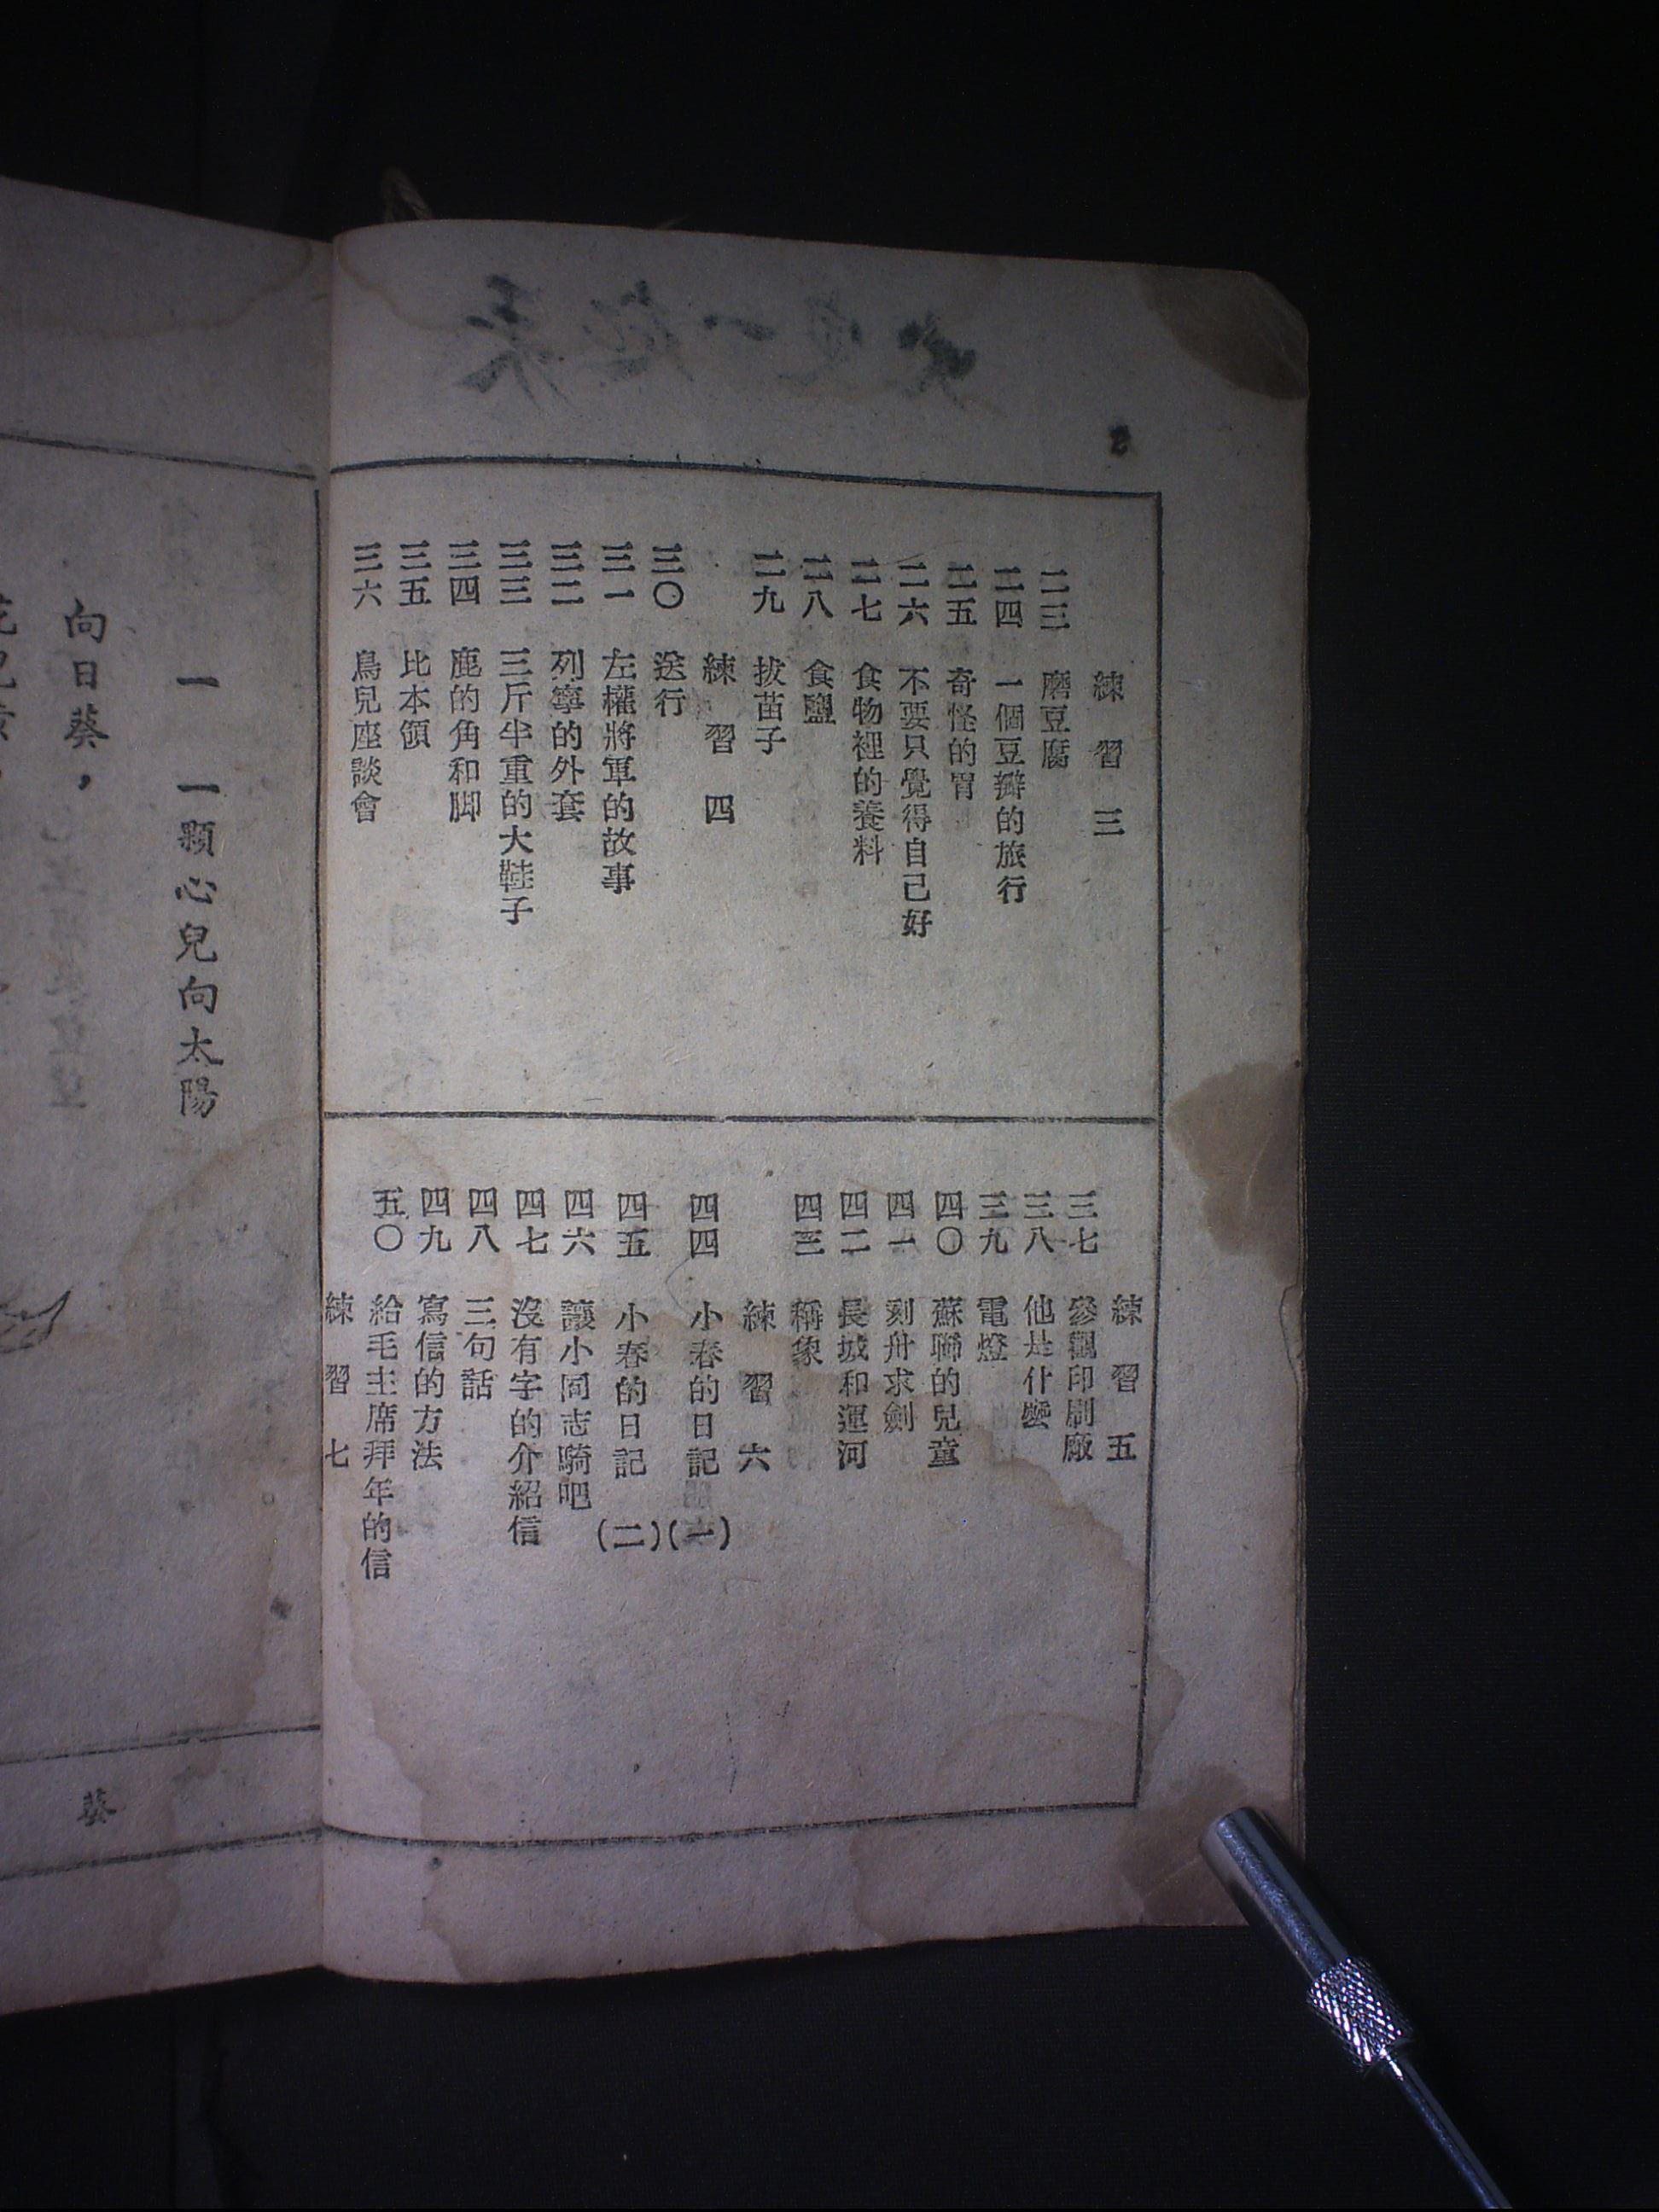 練習三
二三 磨豆腐
二四 一個豆瓣的旅行
二五 奇怪的胃
二六 不要只覺得自己好
二七 食物裡的養料
二八 食鹽
二九 拔苗子
練習四
三〇 送行
三一 左權將軍的故事
三二 列寧的外套
三三 三斤半重的大鞋子
三四 鹿的角和脚
三五 比本領
三六 鳥兒座談會
練習五
三七 參觀印刷廠
三八 他是什麼
三九 電燈
四〇 蘇聯的兒童
四一 刻舟求劍
四二 長城和運河
四三 稱象
練習六
四四 小春的日記(一)
四五 小春的日記(二)
四六 讓小同志騎吧
四七 沒有字的介紹信
四八 三句話
四九 寫信的方法
五〇 給毛主席拜年的信
練習七
一 一顆心兒向太陽
向日葵，
葵